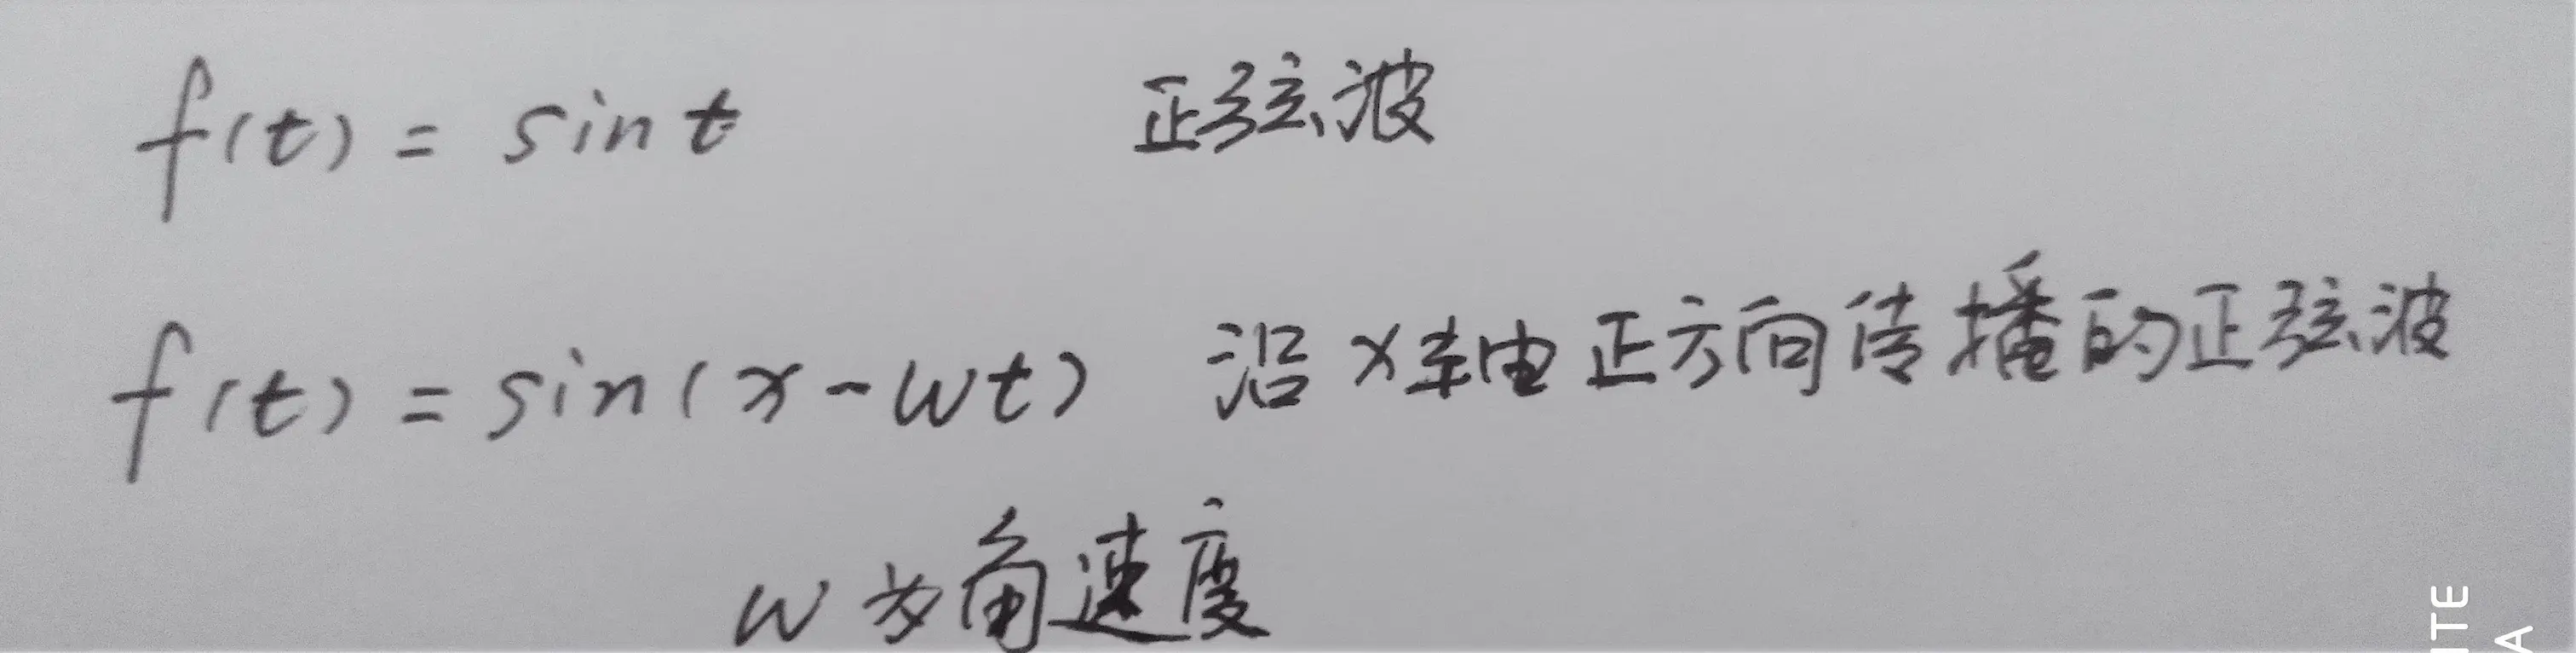 f(t) = sin t 正弦波
f(t) = sin(x - wt) 沿x轴正方向传播的正弦波
w为角速度
ITE
A